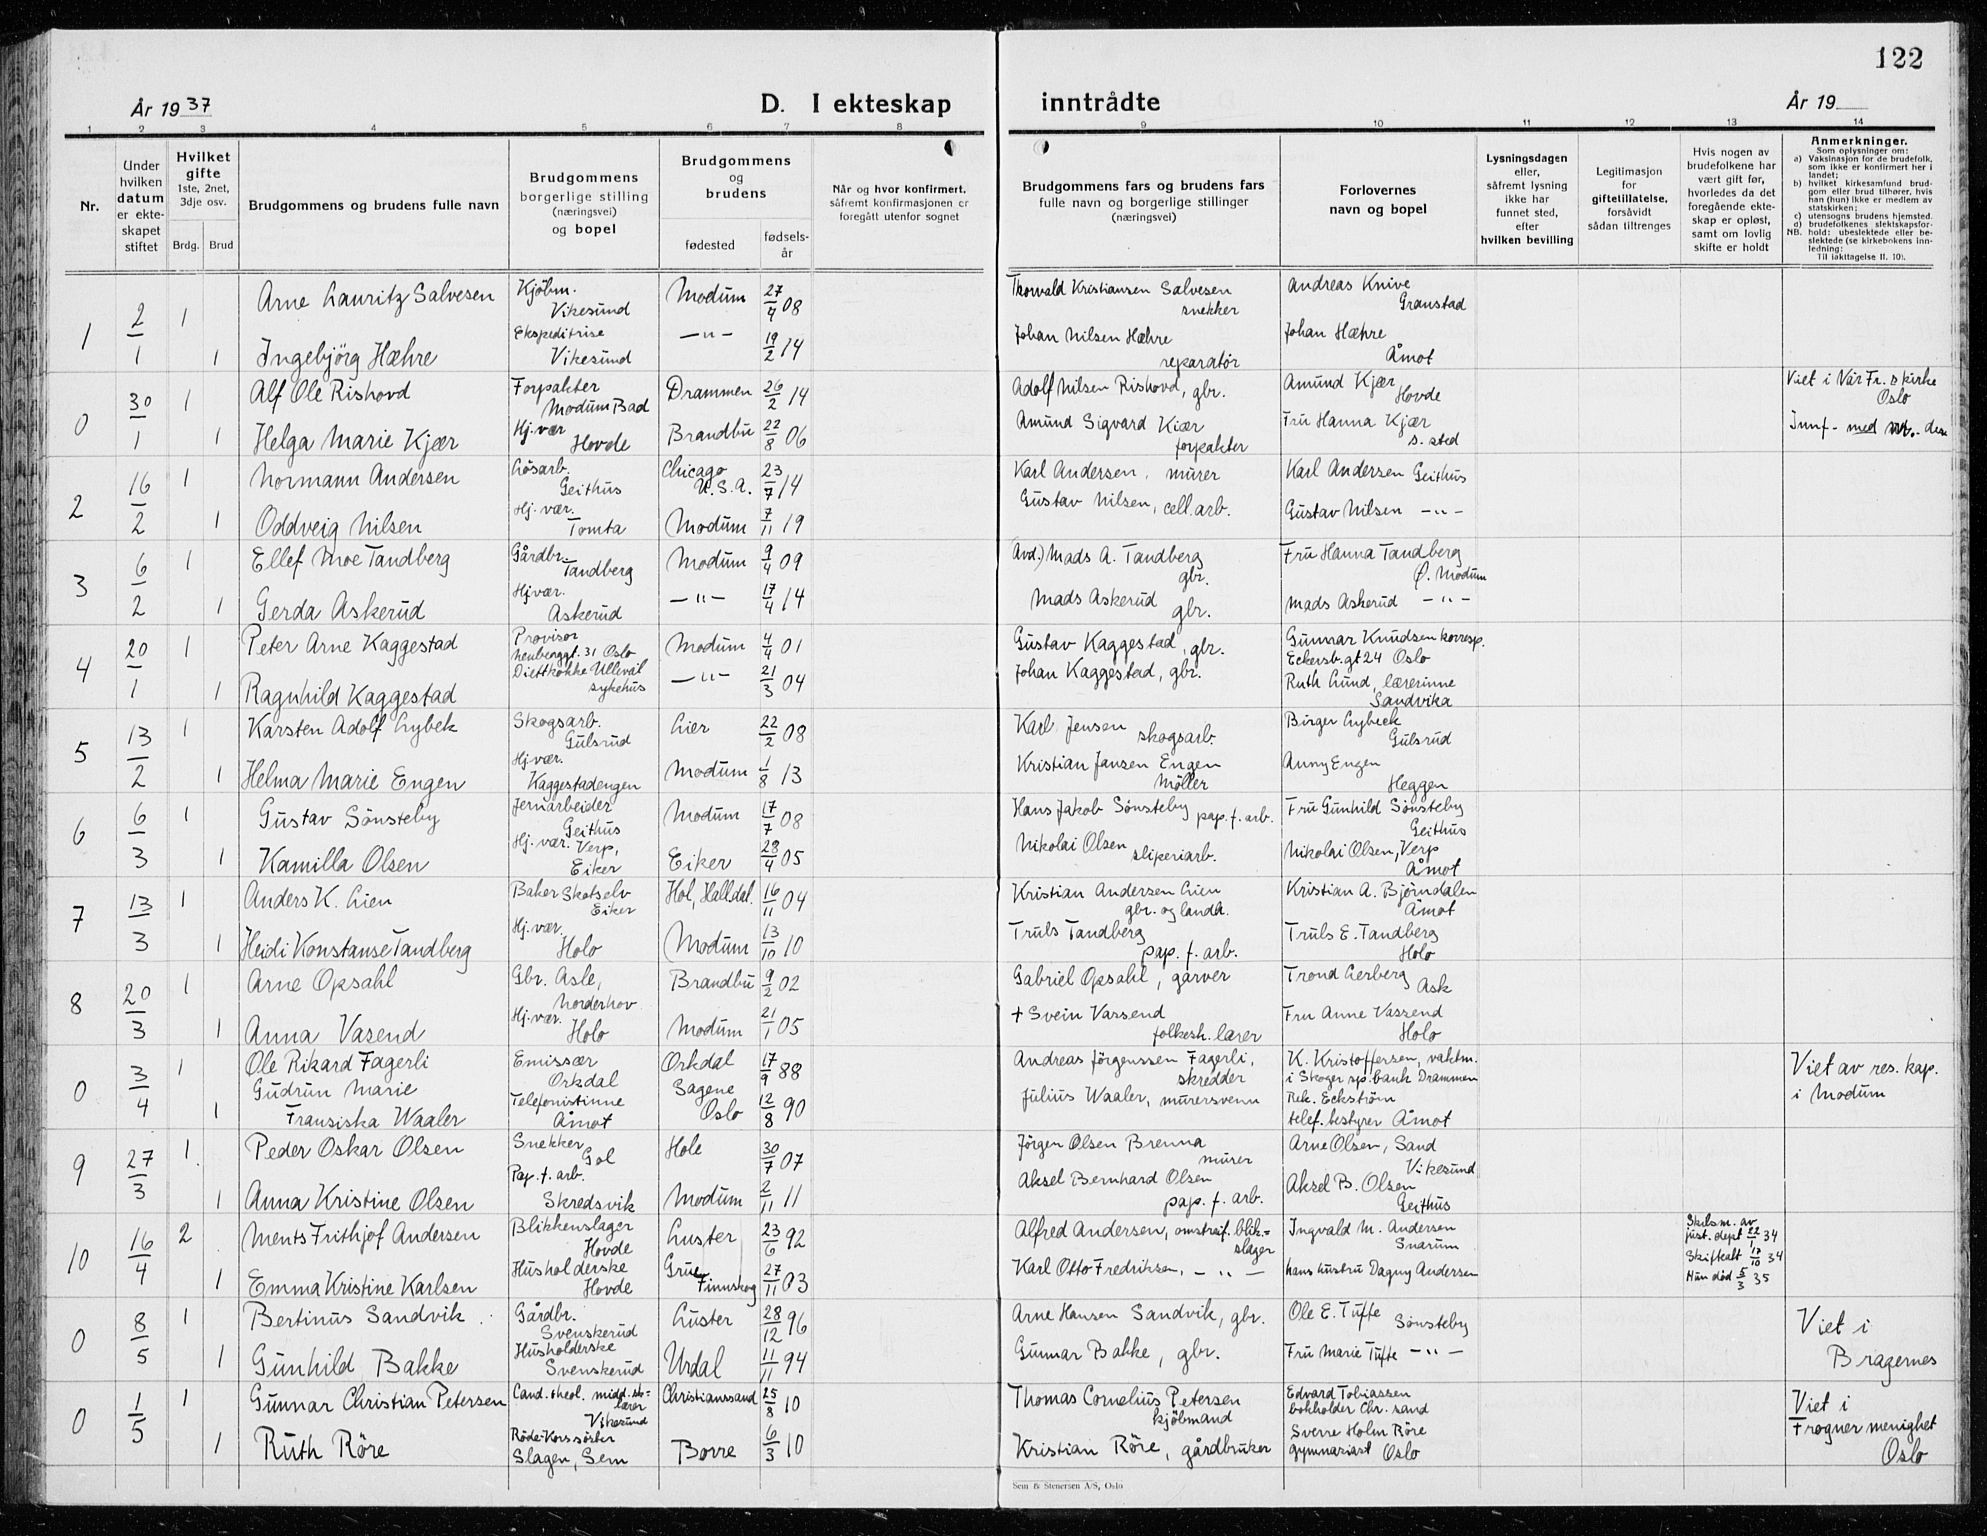 122
År 1937
D. I ekteskap inntrådte
År 19
1 2 3 4 5 6 7 8 9 10 11 12 13 14
Nr.
Under hvilken datum er ekteskapet stiftet
Hvilket gifte
1ste, 2net, 3dje osv.
Brdg. Brud
Brudgommens og brudens fulle navn
Brudgommens borgerlige stilling (næringsvei) og bopel
Brudgommens og brudens
fødested
fødselsår
Når og hvor konfirmert, såfremt konfirmasjonen er foregått utenfor sognet
Brudgommens fars og brudens fars fulle navn og borgerlige stillinger (næringsvei)
Forlovernes navn og bopel
Lysningsdagen eller, såfremt lysning ikke har funnet sted, efter hvilken bevilling
Legitimasjon for giftetillatelse, forsåvidt sådan tiltrenges
Hvis nogen av brudefolkene har vært gift før, hvorledes da det foregående ekteskap er opløst, samt om lovlig skifte er holdt
Anmerkninger.
Som oplysninger om:
a) Vaksinasjon for de brudefolk, som ikke er konfirmert her i landet;
b) hvilket kirkesamfund brudgom eller brud tilhører, hvis han (hun) ikke er medlem av statskirken;
c) utensogns brudens hjemsted.
d) brudefolkenes slektskapsforhold: ubeslektede eller beslektede (se kirkebokens innledning:
NB. Til iakttagelse II. 10).
1 2/1 1 Arne Lauritz Salvesen Kjøbm. Vikesund Modum 27/4 08 Thorvald Kristiansen Salvesen snekker Andreas Knive Granstad
1 Ingebjörg Hæhre Ekspeditrise Vikesund -"- 19/2 14 Johan Nilsen Hæhre reparatør Johan Hæhre Åmot
0 30/1 1 Alf Ole Rishovd Forpakter Modum Bad Drammen 26/2 14 Adolf Nilsen Rishovd, gbr. Amund Kjær Hovde Viet i Vår Fr. skirke Oslo
1 Helga Marie Kjær Hj.vær Hovde Brandbu 22/8 06 Amund Sigvard Kiær forpakter Fru Hanna Kjær s. sted Innf. med
2 16/2 1 Normann Andersen Løsarb. Geithus Chicago U.S.A. 23/7 14 Karl Andersen, murer Karl Andersen Geithus
1 Oddveig Nilsen Hj.vær. Tomta Modum 7/11 19 Gustav Nilsen, cell.arb. Gustav Nilsen -"-
3 6/2 1 Ellef Moe Tandberg Gårdbr. Tandberg Modum 9/4 09 Avd.) Mads A. Tandberg gbr. Fru Hanna Tandberg Ø. Modum
1 Gerda Askerud Hjvær. Askerud -"- 17/4 14 Mads Askerud gbr. Mads Askerud -"-
4 20/1 1 Peter Arne Kaggestad Provisor Neuberggt. 31 Oslo Modum 4/4 01 Gustav Kaggestad, gbr. Gunnar Knudsen korresp. Eckersb.gt 24 Oslo
1 Ragnhild Kaggestad Diettkokke Ullevål sykehus -"- 21/3 04 Johan Kaggestad, gbr. Ruth Lund, lærerinne Sandvika
5 13/2 1 Karsten Adolf Lybek Skogsarb. Gulsrud Lier 22/2 08 Karl Jensen skogsarb. Birger Lybeck Gulsrud
1 Helma Marie Engen Hj.vær. Kaggestadengen Modum 1/8 13 Kristian Jansen Engen Møller Anny Engen Heggen
6 6/3 1 Gustav Sønsteby Jernarbeider Geithus Modum 17/7 08 Hans Jakob Sønsteby pap.f.arb. Fru Gunhild Sønsteby Geithus
1 Kamilla Olsen Hj.vær. Verp, Eiker Eiker 28/4 05 Nikolai Olsen sliperiarb. Nikolai Olsen, Verp Åmot
7 13/3 1 Anders K. Lien Baker Skotselv Eiker Hol, Halldal. 16/11 04 Kristian Andersen Lien gbr. og landh. Kristian A. Bjørndalen Åmot
1 Heidi Konstanse Tandberg Hj.vær. Holo Modum 13/10 10 Truls Tandberg pap. f. arb. Truls E. Tandberg Holo
8 20/3 1 Arne Opsahl Gbr. Asle, Norderhov Brandbu 9/2 02 Gabriel Opsahl, garver Trond Lerberg Ask
1 Anna Vasend Hj.vær. Holo Modum 21/1 05 + Svein Varsend folkesh. lærer Fru Anne Vassend Holo
0 3/4 1 Ole Rikard Fagerli Emissær Orkdal Orkdal 17/9 88 Andreas Jörgenssen Fagerli, skredder K. Kristoffersen, vaktm. i Skoger sp.bank Drammen Viet av res. kap. i Modum
1 Gudrun Marie Fransiska Waaler Telefonistinne Åmot Sagene Oslo 12/8 90 Julius Waaler, murersvenn Rek. Eckstrøm telef.bestyrer Åmot
9 27/3 1 Peder Oskar Olsen Snekker Gol Hole 30/7 07 Jørgen Olsen Brenna murer Arne Olsen, Sand Vikesund
1 Anna Kristine Olsen Pap.f.arb. Skredsvik Modum 2/11 11 Aksel Bernhard Olsen pap. f. arb. Aksel B. Olsen Geithus
10 16/4 2 Ments Frithjof Andersen Blikkenslager Hovde Luster 23/6 92 Alfred Andersen, omstreif. blik.=slager Ingvald M. Andersen Snarum Skilsm. av just. dept 22/1 34 Skiftealt 17/10 34 Hun död 5/3 35
1 Emma Kristine Karlsen Husholderske Hovde Grue Finnskog 27/11 03 Karl Otto Fredriksen, -"- hans hustru Dagny Andersen
0 8/5 1 Bertinus Sandvik Gårdbr. Svenskerud Luster 28/12 96 Arne Hansen Sandvik, gbr. Ole E. Tufte Sønsteby Viet i Bragernes
1 Gunhild Bakke Husholderske Svenskerud Urdal 11/11 94 Gunnar Bakke, gbr. Fru Marie Tufte -"-
0 1/5 1 Gunnar Christian Petersen Cand. theol. midd.sko=lærer Vikesund Christianssand 25/8 10 Thomas Cornelius Petersen kjöbmand Edvard Tobiassen bokholder Chr. sand Viet i Frogner menighet Oslo
1 Ruth Röre Röde-Korssöster Slagen, Sem Borre 6/3 10 Kristian Röre, gårdbruker Sverre Holm Röre gymnasiast Oslo
Sem & Stenersen A/S, Oslo